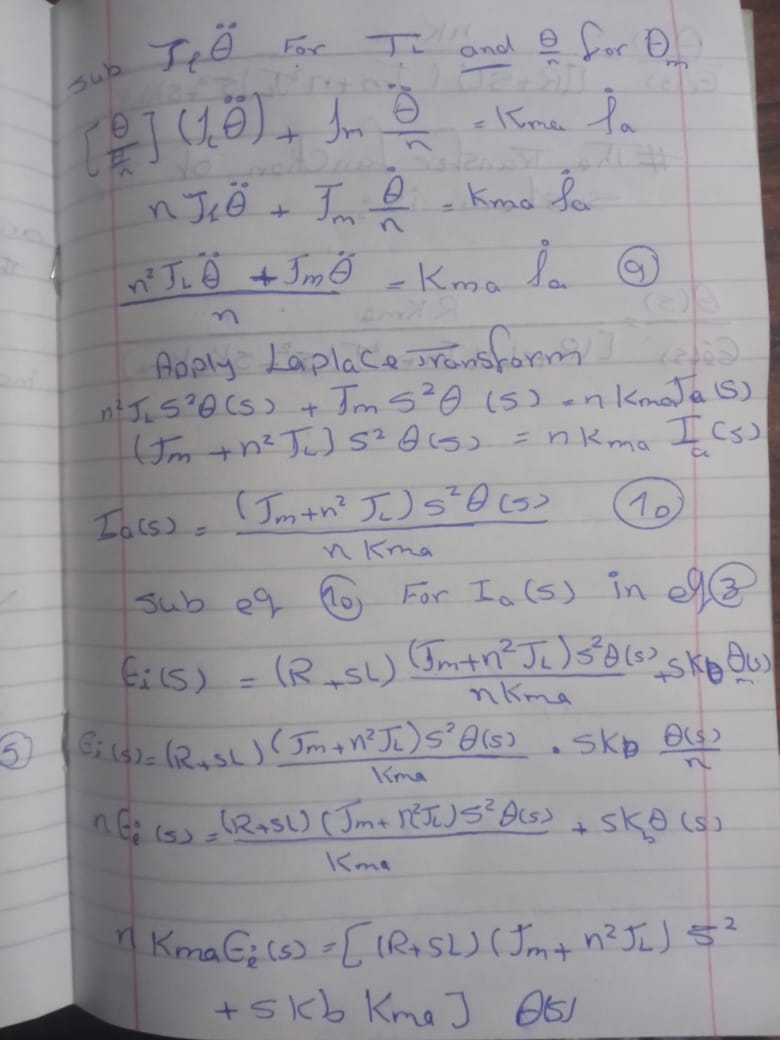 sub J_lθ̈ For T_L and θ/n for θ_m
[θ/(θ/n)] (J_Lθ̈) + J_m θ̈/n = K_ma i_a
n J_lθ̈ + J_m θ̈/n = K_ma i_a
(n² J_L θ̈ + J_m θ̈)/n = K_ma i_a (9)
Apply Laplace Transform
n² J_L S² θ(s) + J_m S² θ (s) = n K_ma I_a (s)
(J_m + n² J_L) s² θ(s) = n K_ma I_a (s)
I_a(s) = (J_m + n² J_L) s² θ (s) / n K_ma (10)
sub eq (10) For I_a (s) in eq (3)
E_i (s) = (R + sL) (J_m + n² J_L) s² θ(s) / n K_ma + s K_b θ_m(s)
(5) E_i (s) = (R + sL) (J_m + n² J_L) s² θ(s) / K_ma . s K_b θ(s)/n
n E_i (s) = (R + sL) (J_m + n² J_L) s² θ(s) / K_ma + s K_b θ (s)
n K_ma E_i (s) = [(R + SL) (J_m + n² J_L) s²
+ s K_b K_ma] θ(s)